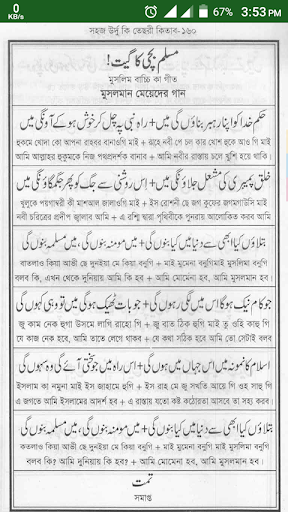 0
KB/s
67%
3:53 PM
সহজ উর্দু কি তেছরী কিতাব-১৬০
مسلم بچی کا گیت!
মুসলিম বাচ্চি কা গীত
মুসলমান মেয়েদের গান
حکم خدا کو اپنا رہبر بناؤں گی میں + راہ نبی پہ چل کر خوش ہو کے آونگی میں
হুকমে খোদা কো আপনা রাহবর বানাওগি মাই + রাহে নবী পে চল কর খোশ হোকে আও গি মাই
আমি আল্লাহর হুকুমকে নিজ পথপ্রদর্শক বানাব + আমি নবীর রাস্তায় চলে খুশি হয়ে থাকি।
خلق پیمبری کی مشعل جلاؤنگی میں + اس روشنی سے جگ کو پھر جگمگاؤنگی میں
খুলুকে পয়গম্বরী কী মাশআল জালাওগি মাই + ইস রৌশনী ছে জগ কুফের জাগমাগাউসি মাই
নবী চরিত্রের প্রদীপ জ্বালাব আমি + এ রশ্মি দ্বারা পৃথিবীকে পুনরায় আলোকিত করব আমি
بتلاؤں کیا ابھی سے دنیا میں کیا بنوں گی + میں مومنہ بنوں گی، میں مسلمہ بنوں گی
বলব কি, এখন থেকে দুনিয়ায় আমি কি হব + আমি মোমেনা হব, আমি মুসলমান হব।
جو کام نیک ہوگا اس میں لگی رہوں گی + جو بات ٹھیک ہوگی میں تو وہی ہوں گی
জু কাম নেক হুগা উসমে লাগি রাহো গি + জু বাত ঠিক হুগি মাই তু ওহি কাহু গি
যে কাজ নেক হবে, আমি তাতে লেগে থাকব + যে কথা সঠিক হবে আমি তো সেটাই বলব
اسلام کا نمونہ میں اس جہاں میں ہوں گی + اس راہ میں جو سختی آئے گی وہ سہوں گی
ইসলাম কা নমুনা মাই ইস জাহামে হুগি + ইস রাহ মে জু সখতি আয়ে গি ওহ সাহু গি
এ জগতে আমি ইসলামের আদর্শ হব + এ রাস্তায় যতো কষ্ট কঠোরতা আসবে তা সহ্য করব।
بتلاؤں کیا ابھی سے دنیا میں کیا بنوں گی + میں مومنہ بنوں گی، میں مسلمہ بنوں گی
বলব কি? আমি দুনিয়ায় কি হব? + আমি মোমেনা হব, আমি মুসলমান হব।
تمت
সমাপ্ত